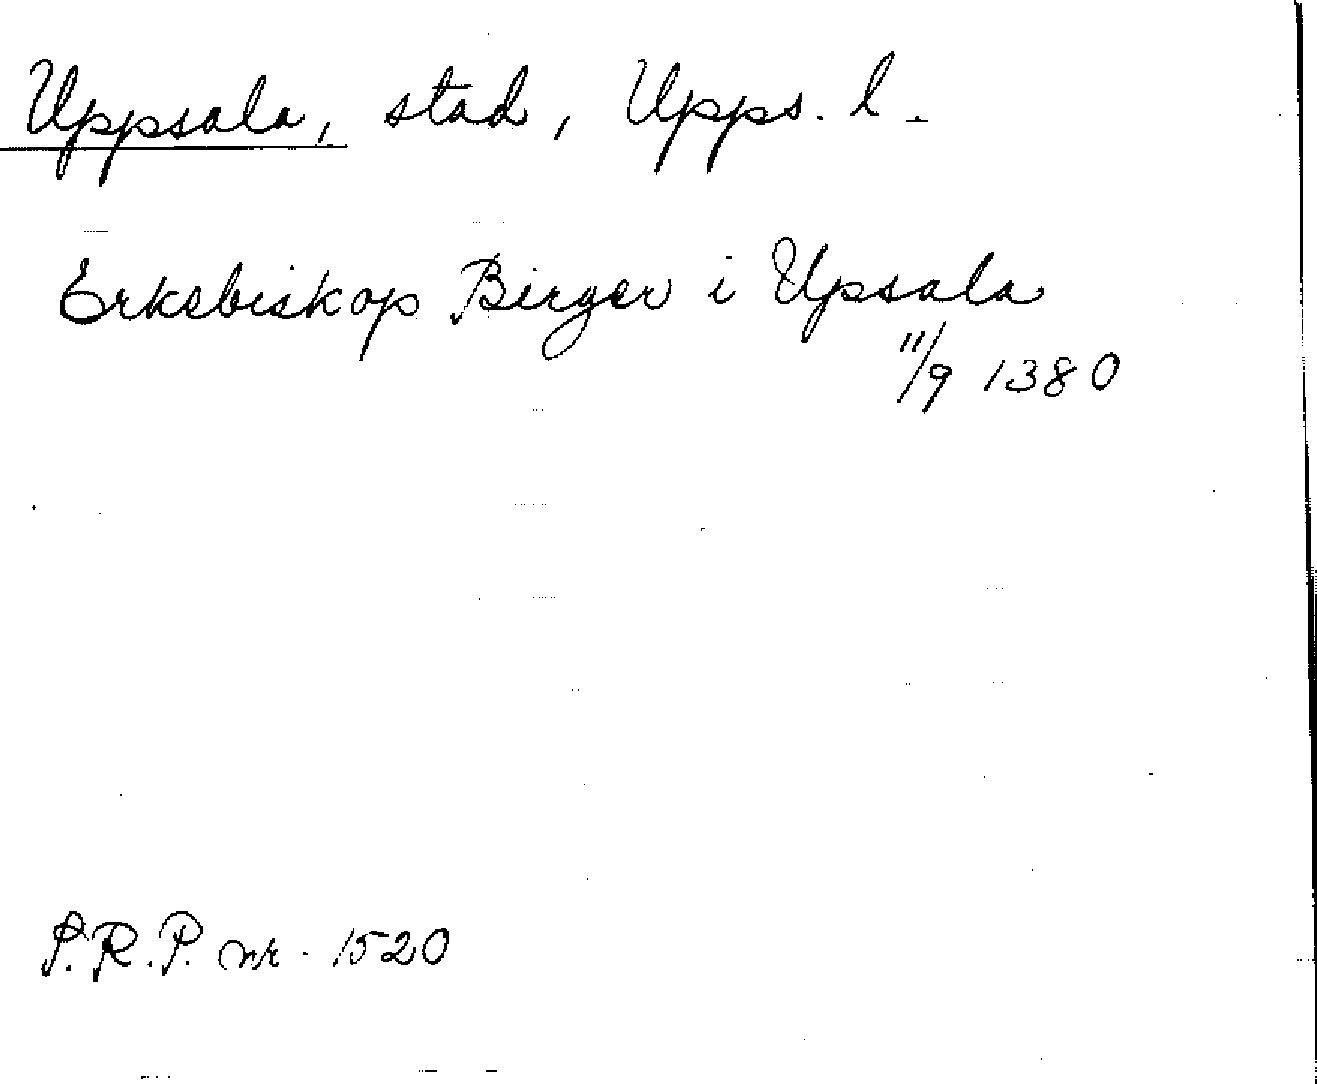 Uppsala, stad, Upps. l.
Erksbiskop Birger i Upsala
11/9 1380
P.R.P. nr. 1520